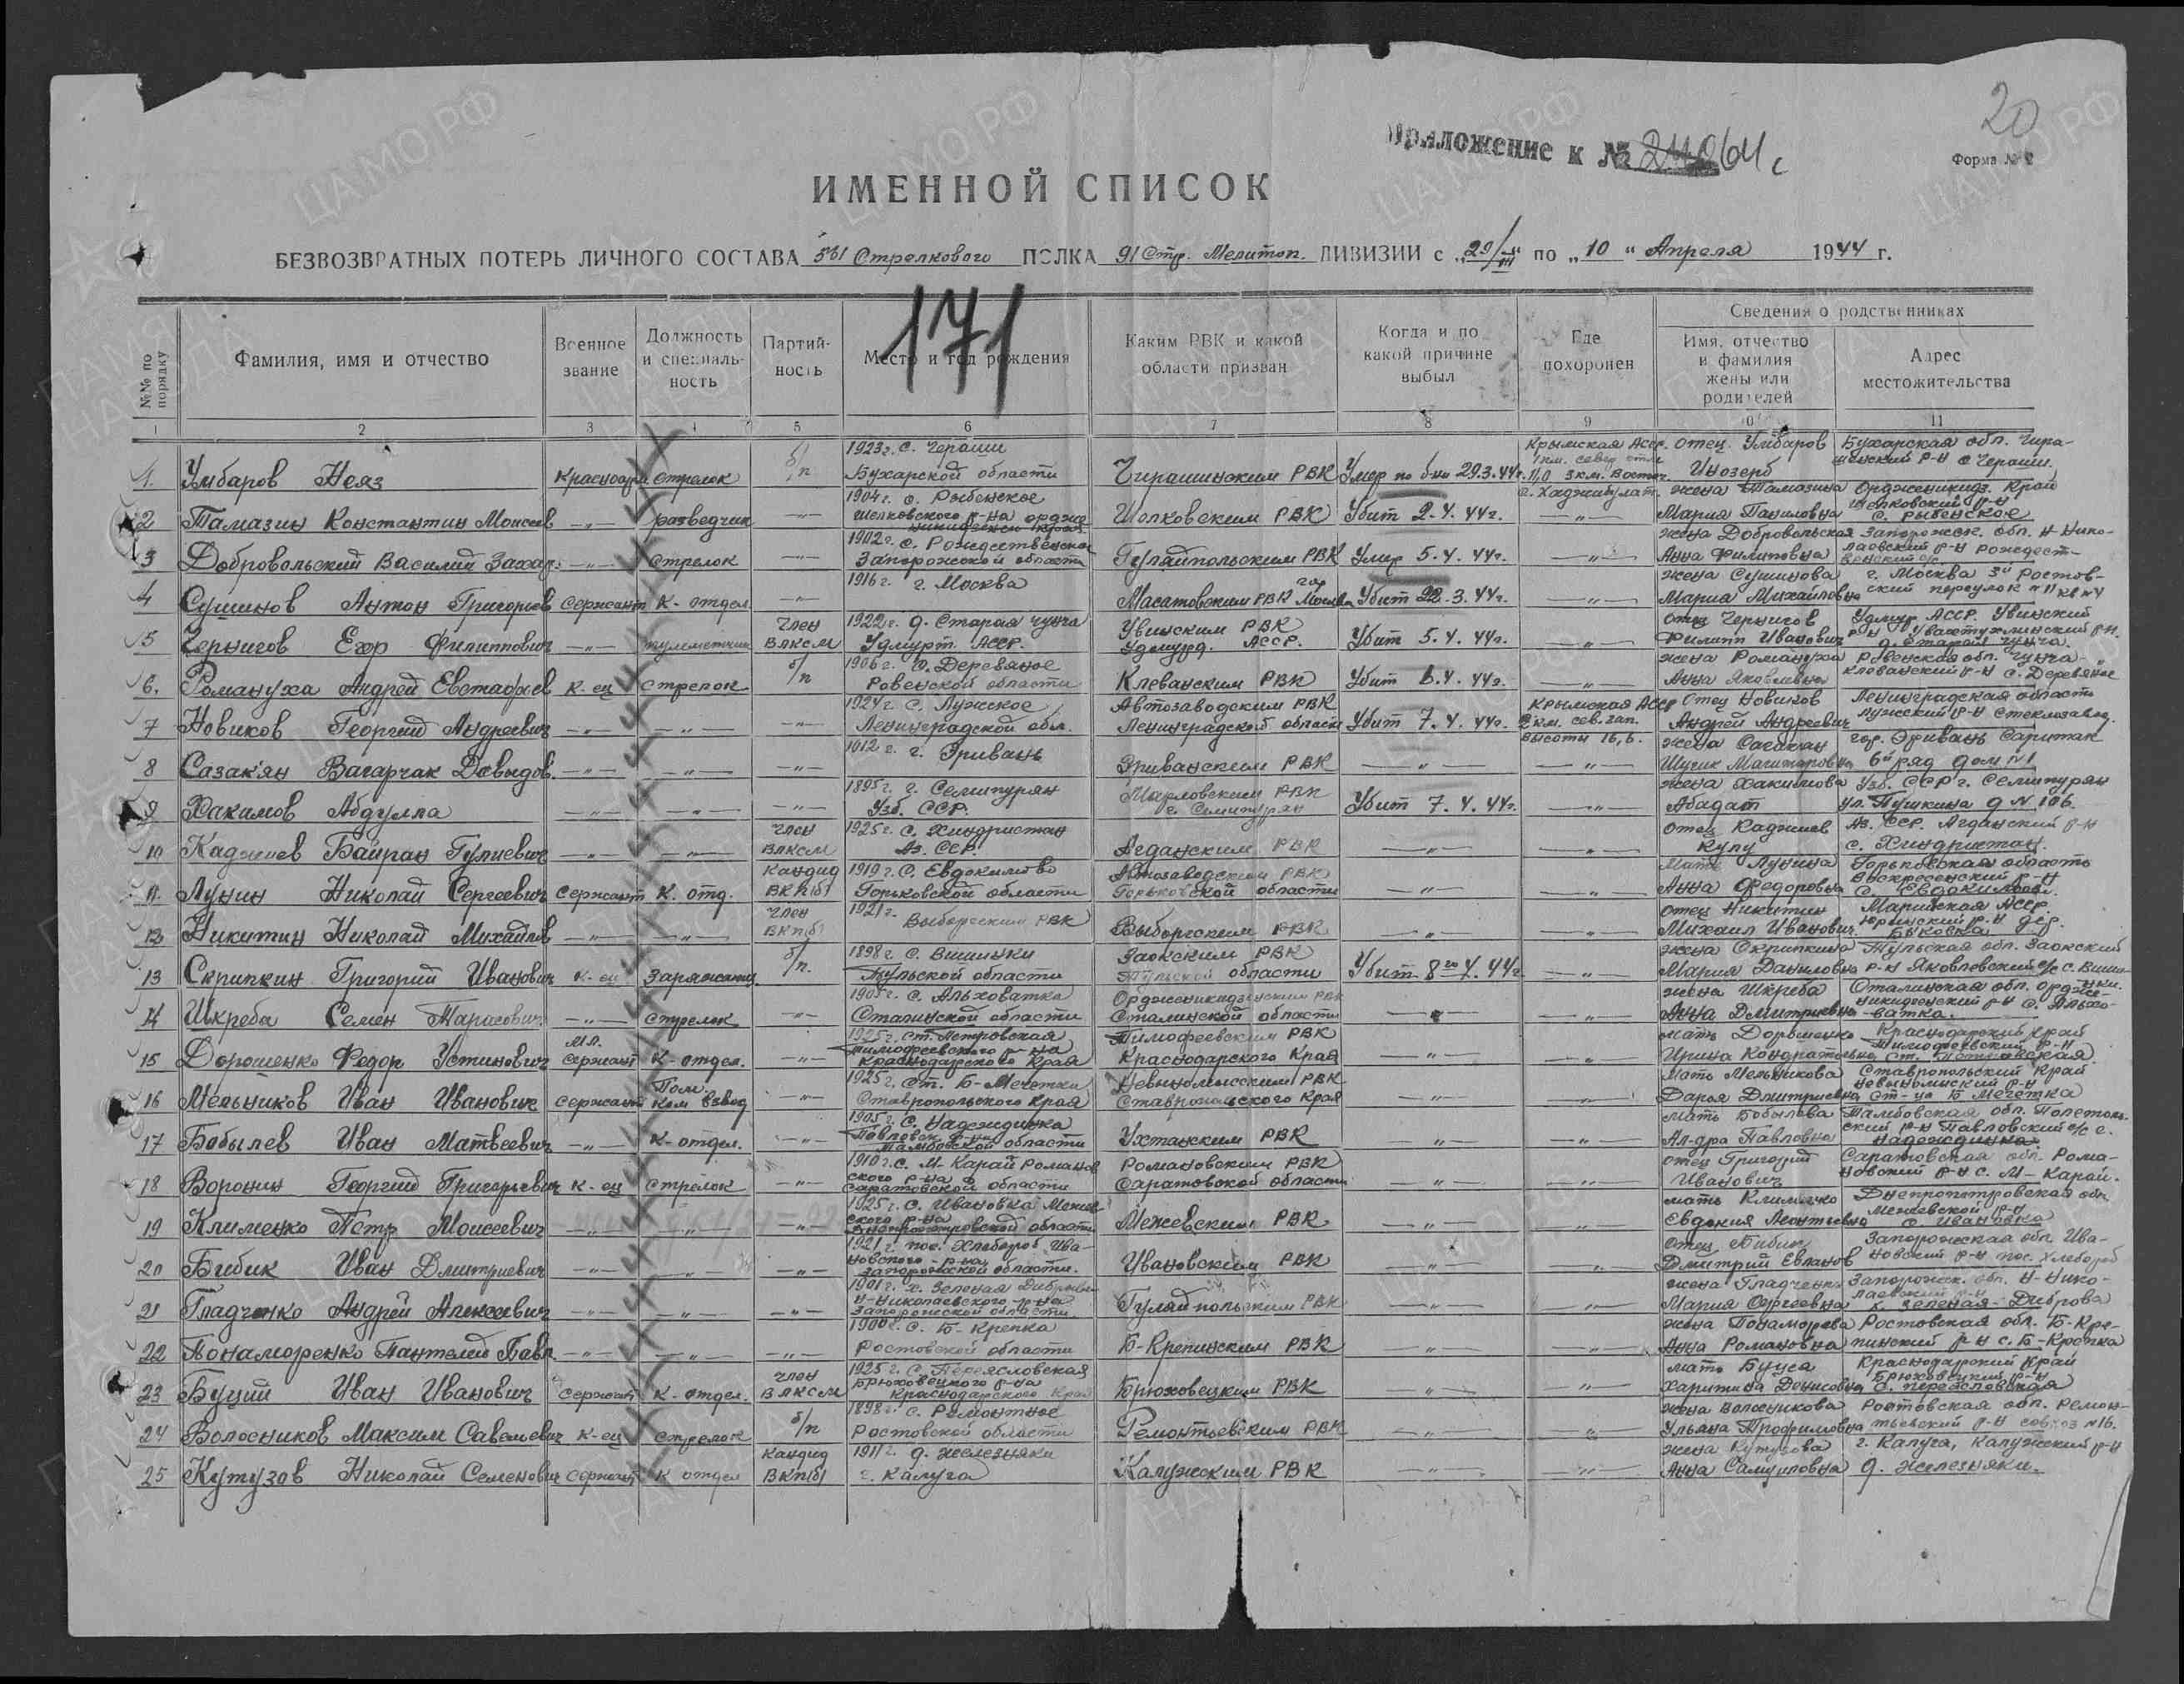 20
Приложение к № 24064 с
Форма № 2
ИМЕННОЙ СПИСОК
БЕЗВОЗВРАТНЫХ ПОТЕРЬ ЛИЧНОГО СОСТАВА 561 Стрелкового ПОЛКА 91 Стр. Мелитоп. ДИВИЗИИ с „29/III“ по „10“ Апреля 1944 г.
171
№№ по порядку
Фамилия, имя и отчество
Военное звание
Должность и специальность
Партийность
Место и год рождения
Каким РВК и какой области призван
Когда и по какой причине выбыл
Где похоронен
Сведения о родственниках
Имя, отчество и фамилия жены или родителей
Адрес местожительства
1 2 3 4 5 6 7 8 9 10 11
1. Умбаров Неяз Красноарм. стрелок б/п 1923 г. с. Чераши Бухарской области Чирашинским РВК Умер по б-ни 29.3.44 г. Крымская АССР. отец Умбаров Инозерб Бухарская обл.
2 Тамазин Константин Моисеев —„— разведчик —„— 1904 г. с. Рыбенское Шелковского р-на Шолковским РВК Убит 2.4.44 г. —„— жена Тамазина Мария Паниловна Орджоникидз. край Шелковский р-н с. Рыбенское
3 Добровольский Василий Захар. —„— Стрелок —„— 1902 г. с. Рождественское Запорожской области Гуляйпольским РВК Умер 5.4.44 г. —„— жена Добровольская Анна Филиповна Запорожск. обл. Н-Николаевский р-н
4 Сушинов Антон Григорьев Сержант К-отдел. —„— 1916 г. г. Москва РВК Москва Убит 22.3.44 г. —„— жена Сушинова Мария Михайловна г. Москва 3й Ростовский переулок №11 кв №4
5 Чернигов Егор Филиппович —„— пулеметчик член ВЛКСМ 1922 г. д. Старая чунча Удмурт. АССР. Увинским РВК Удмурд. АССР. Убит 5.4.44 г. —„— отец Чернигов Филипп Иванович Удмур. АССР. Увинский р-н д. Старая чунча
6. Романуха Андрей Евстафьев К-ец Стрелок б/п 1906 г. с. Деревяное Ровенской области Клеванским РВК Убит 6.4.44 г. —„— жена Романуха Анна Яковлевна Ровенская обл. Клеванский р-н с. Деревяное
7 Новиков Георгий Андреевич —„— —„— —„— 1924 г. с. Лужское Ленинградской обл. Автозаводским РВК Ленинградской области Убит 7.4.44 г. Крымская АССР 2 км. сев. зап. высоты 16,6. Отец Новиков Андрей Андреевич Ленинградская область Лужский р-н Стеклозавод.
8 Сазакʼян Вагарчак Давыдов. —„— —„— —„— 1912 г. г. Эривань Эриванским РВК —„— —„— жена Сасакян Шушик гор. Эривань 6й ряд дом №1
9 Хакимов Абдулла —„— —„— —„— 1895 г. Узб. ССР. РВК Убит 7.4.44 г. —„— жена Хакимова Абадат Узб. ССР ул. Пушкина д № 106.
10 Каджиев Байран Гулиевич —„— —„— член ВЛКСМ 1925 г. с. Хиндристан Аз. ССР. Агданским РВК —„— —„— отец Каджиев Кулу Аз. ССР. Агданский р-н с. Хиндристан.
11. Лунин Николай Сергеевич Сержант К. отд. Кандид ВКП(б) 1919 г. с. Евдокимово Горьковской области Автозаводским РВК Горьковской области —„— —„— мать Лунина Анна Федоровна Горьковская область Воскресенский р-н с. Евдокимово.
12 Никитин Николай Михайлов —„— —„— член ВКП(б) 1921 г. Выборгским РВК Выборгским РВК —„— —„— отец Никитин Михаил Иванович Марийская АССР. Юринский р-н дер. Быковка
13 Скрипкин Григорий Иванович К-ец Заряжающ. б/п. 1898 г. с. Вишинки Тульской области Заокским РВК Тульской области Убит 8го 4.44 г. —„— жена Скрипкина Мария Даниловна Тульская обл. Заокский р-н Яковлевский с/с
14 Шкреба Семен Тарасович —„— Стрелок —„— 1905 г. с. Альховатка Сталинской области Орджоникидзевским РВК Сталинской области —„— —„— жена Шкреба Анна Дмитриевна Сталинская обл. Орджоникидзевский р-н с. Альховатка.
15 Дорошенко Федор Устинович мл. Сержант К-отдел. —„— 1925 г. ст. Петровская Тимофеевского р-на Краснодарского Края Тимофеевским РВК Краснодарского Края —„— —„— мать Дорошенко Ирина Кондратьевна Краснодарский Край Тимофеевский р-н ст. Петровская
16 Мельников Иван Иванович Сержант Пом. Ком взвод —„— 1925 г. ст. Б-Мечетка Ставропольского Края Невинномысским РВК Ставропольского Края —„— —„— Мать Мельникова Дарья Дмитриевна Ставропольский Край ст-ца Б Мечетка
17 Бобылев Иван Матвеевич —„— К-отдел. —„— 1905 г. с. Надеждинка Тамбовской области Ухтанским РВК —„— —„— мать Бобылева Ал-дра Павловна Тамбовская обл. Павловский с/с с. Надеждинка
18 Воронин Георгий Григорьевич К-ец Стрелок —„— 1910 г. с. М-Карай Романовского р-на Саратовской области Романовским РВК Саратовской области —„— —„— отец Григорий Иванович Саратовская обл. Романовский р-н с. М-Карай.
19 Клименко Петр Моисеевич —„— —„— —„— 1925 г. с. Ивановка Межевского р-на Днепропетровской области Межевским РВК —„— —„— мать Клименко Евдокия Леонтьевна Днепропетровская обл. Межевской р-н с. Ивановка
20 Бибик Иван Дмитриевич —„— —„— —„— 1921 г. пос. Хлебороб Ивановского р-на Запорожской области. Ивановским РВК —„— —„— отец Бибик Дмитрий Запорожская обл. Ивановский р-н пос. Хлебороб
21 Гладченко Андрей Алексеевич —„— —„— —„— 1901 г. х. Зеленая Диброва Н-Николаевского р-на Запорожской области. Гуляйпольским РВК —„— —„— жена Гладченко Мария Сергеевна Запорожск. обл. Н-Николаевский р-н х. Зеленая-Диброва
22 Понаморенко Пантелей Павл. —„— —„— —„— 1900 г. с. Б-Крепка Ростовской области Б-Крепинским РВК —„— —„— жена Анна Романовна Ростовская обл. Б-Крепинский р-н с. Б-Крепка
23 Буций Иван Иванович Сержант К-отдел. член ВЛКСМ 1925 г. с. Переясловская Брюховецкого р-на Краснодарского Края Брюховецким РВК —„— —„— мать Буца Харитина Денисовна Краснодарский Край Брюховецкий р-н с. Переясловская
24 Волосников Максим Савельевич К-ец Стрелок б/п 1898 г. с. Ремонтное Ростовской области Ремонтьевским РВК —„— —„— жена Волосникова Ульяна Трофимовна Ростовская обл. Ремонтьевский р-н совхоз №16.
25 Кутузов Николай Семенович Сержант К отдел Кандид ВКП(б) 1911 г. д. Железняки г. Калуга Калужским РВК —„— —„— жена Кутузова Анна Самуиловна г. Калуга, Калужский р-н д. Железняки.